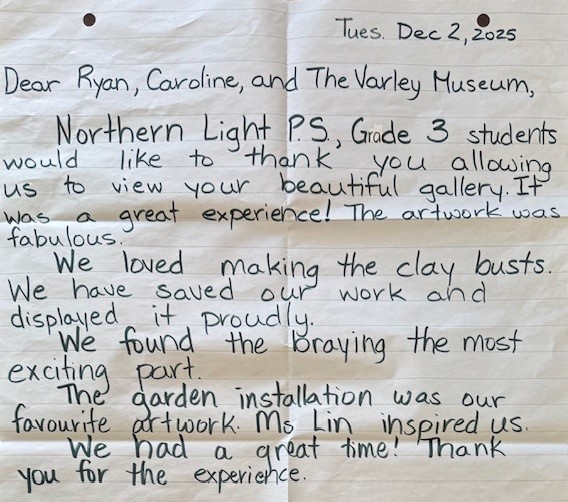 Tues. Dec 2, 2025
Dear Ryan, Caroline, and The Varley Museum,
Northern Light P.S., Grade 3 students
would like to thank you allowing
us to view your beautiful gallery. It
was a great experience! The artwork was
fabulous.
We loved making the clay busts.
We have saved our work and
displayed it proudly.
We found the braying the most
exciting part.
The garden installation was our
favourite artwork. Ms Lin inspired us.
We had a great time! Thank
you for the experience.